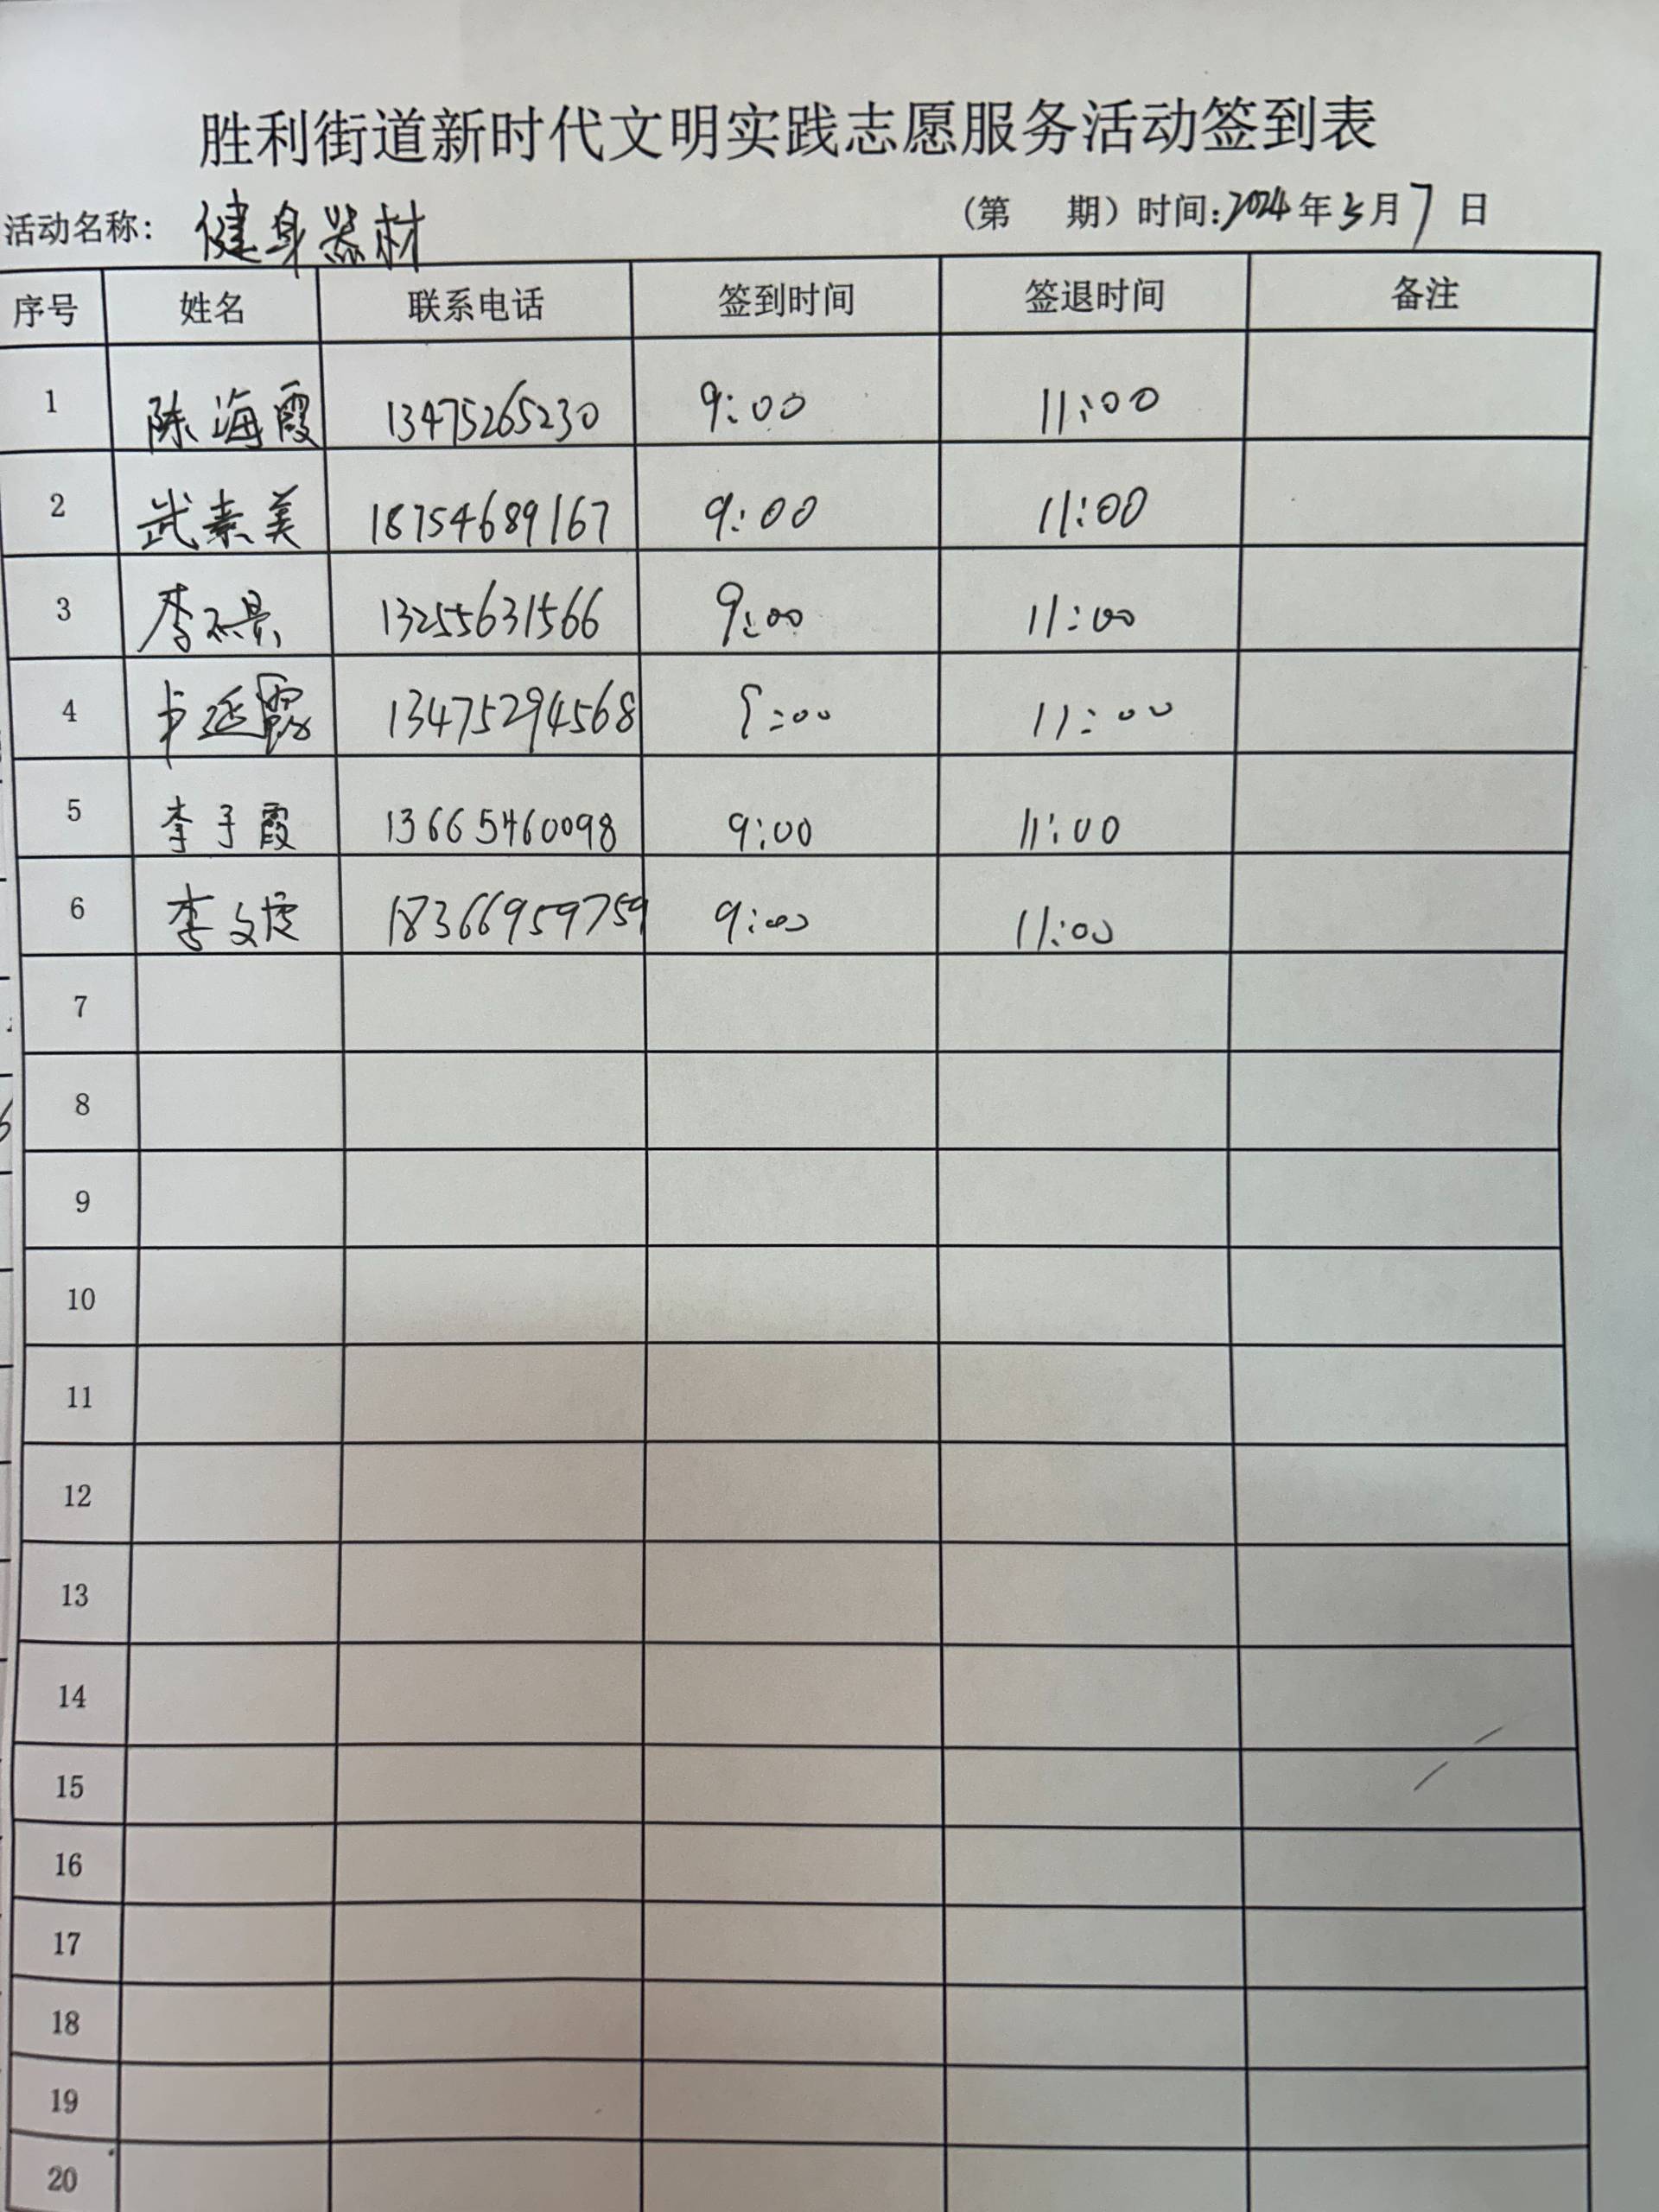 胜利街道新时代文明实践志愿服务活动签到表
活动名称：健身器材 （第 期）时间：2024年3月7日
序号 姓名 联系电话 签到时间 签退时间 备注
1 陈海霞 13475265230 9:00 11:00
2 武素美 18754689167 9:00 11:00
3 李 13255631566 9:00 11:00
4 延霞 13475294568 9:00 11:00
5 李于霞 13665460098 9:00 11:00
6 李文 18366959759 9:00 11:00
7
8
9
10
11
12
13
14
15
16
17
18
19
20